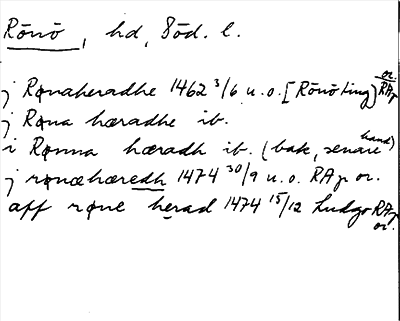 Rönö, hd, Söd. l.
j Rønaheradhe 1462 3/6 u.o. [Rönö ting) RAp or.
j Røna hæradhe ib.
i Rønna hæradh ib. (bak, senare hand)
j rønæhæredh 1474 30/9 u.o. RAp or.
aff røne herad 1474 15/12 Ludgo RAp or.